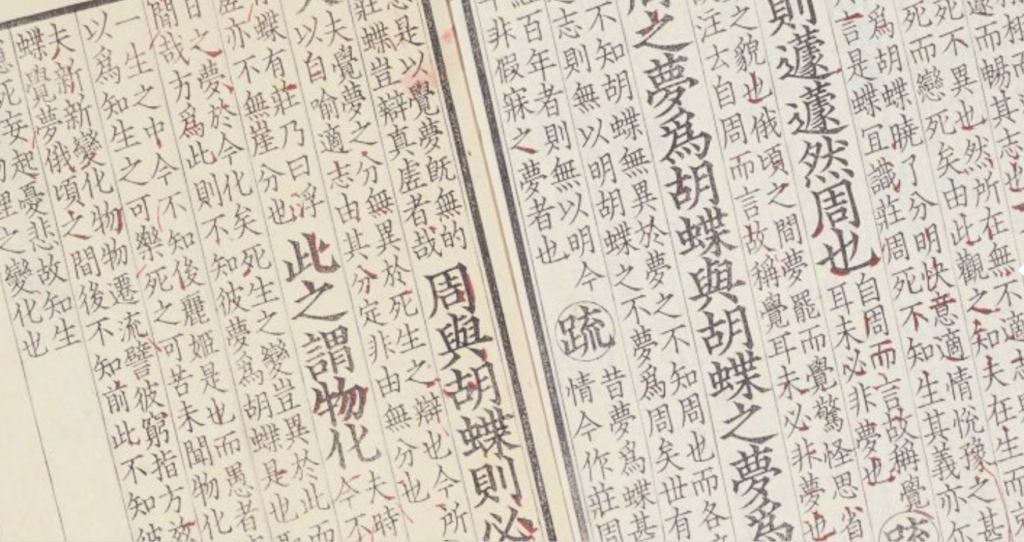 暢其志
死不異也然所在無不適志
死而戀死矣由此觀之知夫在生而
爲胡蝶曉了分明快意適情悅豫之甚
言是蝶宜識莊周死不知生其義亦
則蘧蘧然周也
自周而言故稱覺
耳未必非夢也
疏
之貌也俄頃之間夢罷而覺驚怪思省
汪去自周而言故稱覺耳未必非夢也
之夢爲胡蝶與胡蝶之夢爲
不知胡蝶無異於夢之不知周也而各
之志則無以明胡蝶之不夢爲周矣世有
百年者則無以明今
非假寐之夢者也
疏
昔夢爲蝶甚
情今作莊周
是以覺夢旣無的
蝶豈辯真虛者哉
周與胡蝶則必
夫覺夢之分無異於死生之辯也今所
以自喻適志由其分定非由無分也
蝶有莊乃曰浮
亦不無崖分也
此之謂物化
夫時
今不
之夢於今化矣死生之變豈異於此而
哉方爲此則不知彼夢爲胡蝶是也
一生之中今不知後麗姬是也而愚者
以爲知生之可樂死之可苦未聞物化
夫新新變化物物遷流譬彼窮指方
蝶覺夢俄頃之間後不知前此不知彼
死妄起憂悲故知生
理之變化也